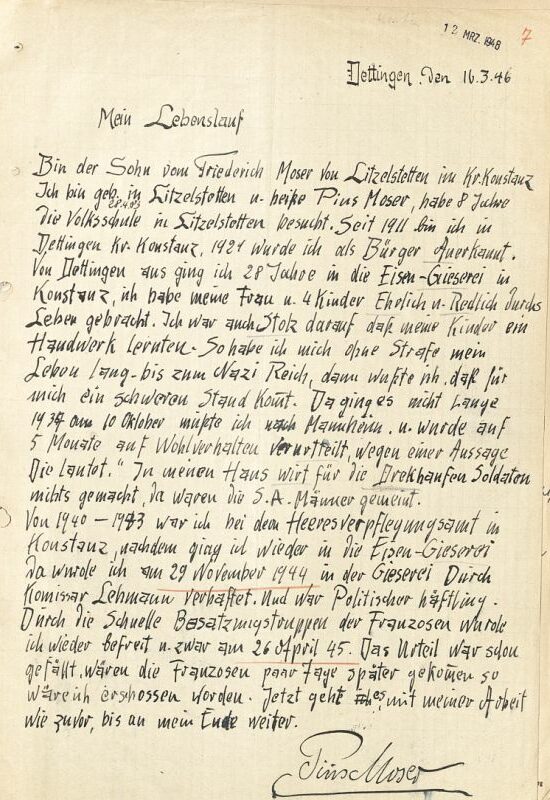 12 MRZ. 1948
7
Dettingen den 16.3.46
Mein Lebenslauf
Bin der Sohn vom Friederich Moser von Litzelstetten im Kr. Konstanz
Ich bin geb. in Litzelstetten u. heiße Pius Moser, habe 8 Jahre
die Volksschule in Litzelstetten besucht. Seit 1911 bin ich in
Dettingen Kr. Konstanz, 1921 wurde ich als Bürger Anerkannt.
Von Dettingen aus ging ich 28 Jahre in die Eisen-Gieserei in
Konstanz, ich habe meine Frau u. 4 Kinder Ehrlich u. Redlich durchs
Leben gebracht. Ich war auch Stolz darauf daß meine Kinder ein
Handwerk lernten. So habe ich mich ohne Strafe mein
Leben lang bis zum Nazi Reich, dann wußte ich, daß für
mich ein schweren Stand Komt. Da ging es nicht Lange
1937 am 10 Oktober mußte ich nach Mannheim. u. wurde auf
5 Monate auf Wohlverhalten verurtteilt, wegen einer Aussage
Die lautet. " In meinen Haus wirt für die Drekhaufen Soldaten
nichts gemacht, da waren die S.A. Männer gemeint.
Von 1940 – 1943 war ich bei dem Heeresverpflegungsamt in
Konstanz, nachdem ging ich wieder in die Eisen-Gieserei
da wurde ich am 29 November 1944 in der Gieserei Durch
Komissar Lehmann verhaftet. Und war Politischer häftling.
Durch die Schnelle Besatzungstruppen der Franzosen wurde
ich wieder befreit u. zwar am 26 April 45. Das Urteil war schon
gefällt, wären die Franzosen paar Tage später gekomen so
wäre ich erschossen worden. Jetzt geht es mit meiner Arbeit
wie zuvor, bis an mein Ende weiter.
Pius Moser